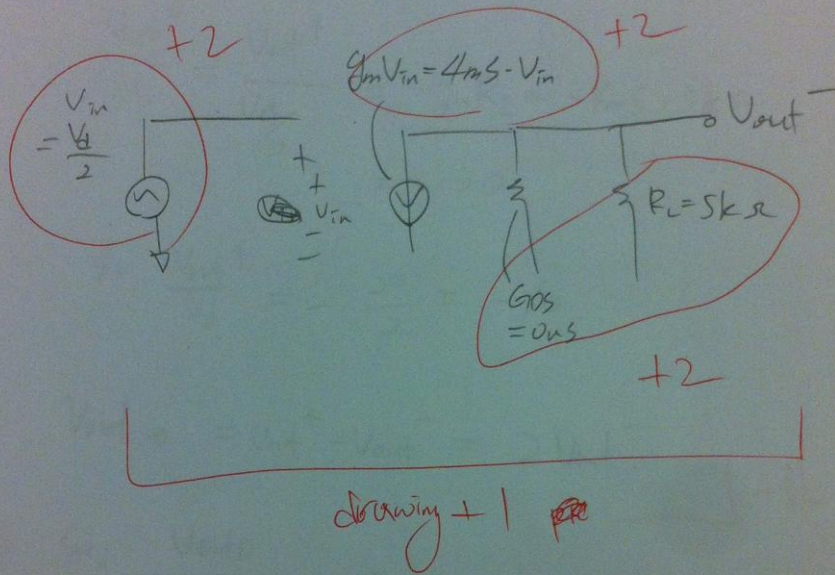 +2
Vin
= Vd/2
gmVin = 4mS - Vin
+2
Vout⁻
+
+
Vin
-
-
RL = 5kΩ
GDS
= 0mS
+2
drawing + 1